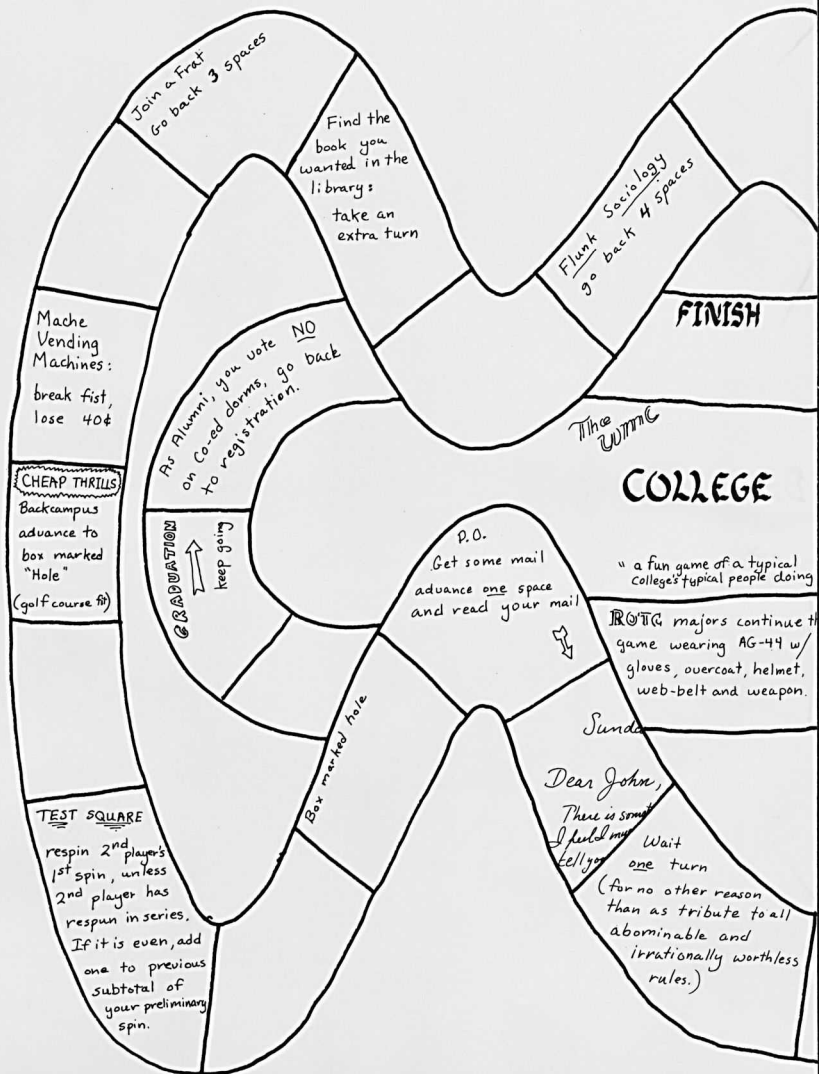 Join a Frat
Go back 3 spaces
Find the
book you
wanted in the
library:
take an
extra turn
Flunk Sociology
go back 4 spaces
FINISH
Mache
Vending
Machines:
break fist,
lose 40¢
As Alumni, you vote NO
on Co-ed dorms, go back
to registration.
The WMC
COLLEGE
" a fun game of a typical
College's typical people doing
CHEAP THRILLS
Backcampus
advance to
box marked
"Hole"
(golf course fit)
GRADUATION
keep going
P.O.
Get some mail
advance one space
and read your mail
ROTC majors continue th
game wearing AG-44 w/
gloves, overcoat, helmet,
web-belt and weapon.
Box marked hole
Sunda
Dear John,
There is somet
I feel I mu
tell you
Wait
one turn
(for no other reason
than as tribute to all
abominable and
irrationally worthless
rules.)
TEST SQUARE
respin 2nd player's
1st spin, unless
2nd player has
respun in series.
If it is even, add
one to previous
subtotal of
your preliminary
spin.